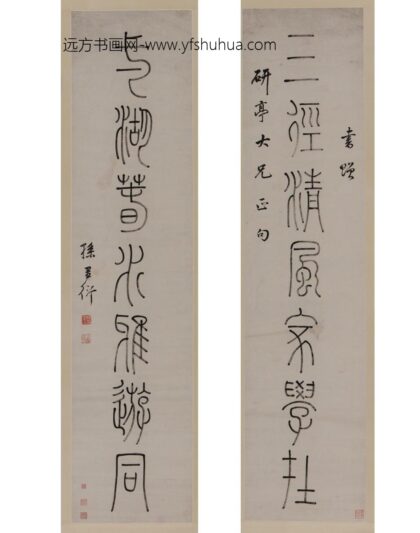 远方书画网-www.yfshuhua.com
書贈
研亭大兄正句
三徑清風家學在
湖春水雅遊同
孫星衍